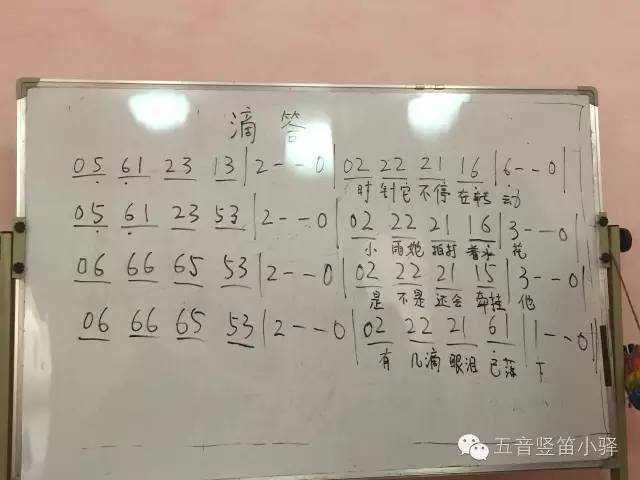 滴 答
05 61 23 13 | 2 - - 0 | 02 22 21 16 | 6 - - 0 |
时 针它 不停 在转 动
05 61 23 53 | 2 - - 0 | 02 22 21 16 | 3 - - 0 |
小 雨她 拍打 着水 花
06 66 65 53 | 2 - - 0 | 02 22 21 15 | 3 - - 0 |
是 不是 还会 牵挂 他
06 66 65 53 | 2 - - 0 | 02 22 21 61 | 1 - - 0 ||
有 几滴 眼泪 已落 下
五音竖笛小驿